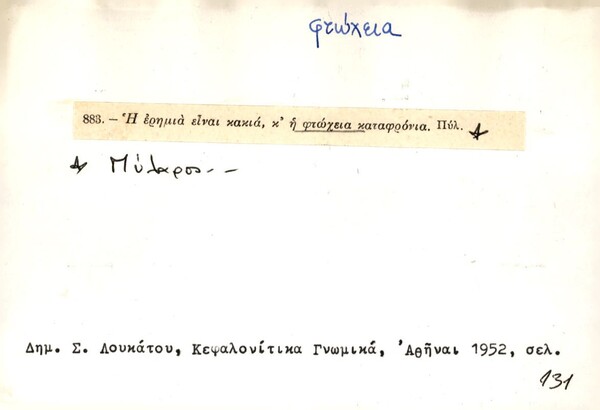 φτώχεια
883. – Ἡ ἐρημιὰ εἶναι κακιά, κ' ἡ φτώχεια καταφρόνια. Πύλ.
Πύλαρος--
Δημ. Σ. Λουκάτου, Κεφαλονίτικα Γνωμικά, Ἀθῆναι 1952, σελ.
131